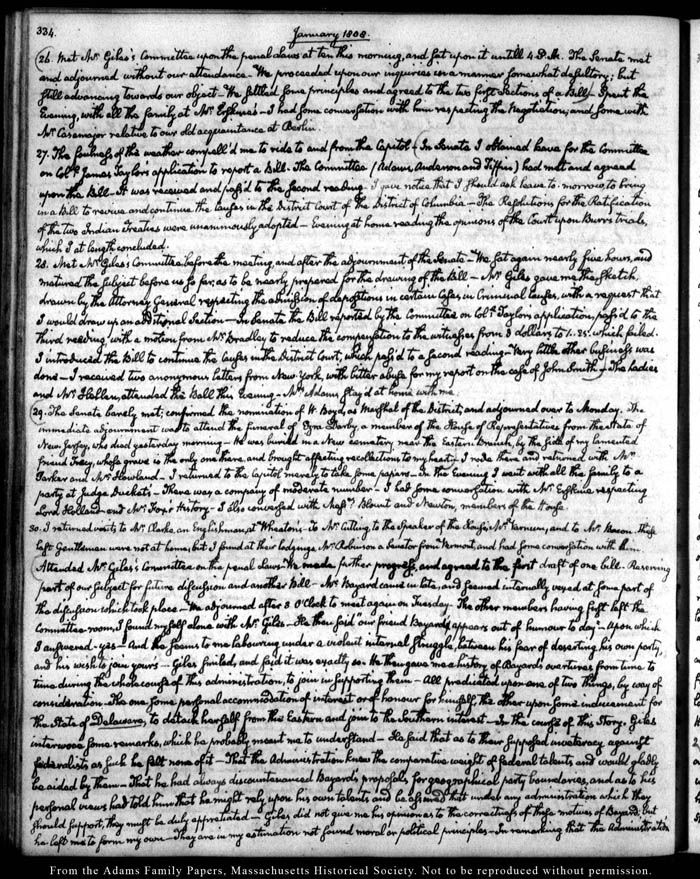 334.
January 1808.
26. Met Mr Giles's Committee upon the penal laws at ten this morning, and sat upon it untill 4 P.M. The Senate met
and adjourned without our attendance. We proceeded upon our inquiries in a manner somewhat desultory; but
still advancing towards our object. We settled some principles and agreed to the two first Sections of a Bill. Spent the
Evening, with all the family at Mr Erskine's. I had some conversation with him respecting the Negotiation; and some with
Mr Casamajor relative to our old acquaintance at Berlin.
27. The foulness of the weather compell'd me to ride to and from the Capitol. In Senate I obtained leave for the Committee
on Coll. James Taylor's application to report a Bill. The Committee (Adams, Anderson and Tiffin) had met and agreed
upon the Bill. It was received and pass'd to the second reading. I gave notice that I should ask leave to-morrow to bring
in a Bill to revive and continue the causes in the District Court of the District of Columbia — The Resolutions for the Ratification
of the two Indian treaties were unanimously adopted — Evening at home reading the opinions of the Court upon Burr's trials,
which I at length concluded.
28. Met Mr Giles's Committee before the meeting and after the adjournment of the Senate — We sat again nearly five hours, and
matured the subject before us so far, as to be nearly prepared for the drawing of the Bill — Mr Giles gave me the sketch
drawn by the Attorney General respecting the admission of depositions in certain cases in Criminal causes, with a request that
I would draw up an additional Section — In Senate the Bill reported by the Committee on Coll. Taylor's application, pass'd to the
third reading, with a motion from Mr Bradley to reduce the compensation to the witnesses from 3 dollars to 1.25. which failed.
I introduced the Bill to continue the causes in the District Court, which pass'd to a second reading — Very little other business was
done — I received two anonymous letters from New-York, with bitter abuse for my report on the case of John Smith — The ladies
and Mr Hellen, attended the Ball this Evening — Mrs Adams stay'd at home with me.
29. The Senate barely met, confirmed the nomination of W. Boyd, as Marshal of the District, and adjourned over to Monday. The
immediate adjournment was to attend the funeral of Ezra Darby, a member of the House of Representatives from the State of
New Jersey, who died yesterday morning — He was buried in a New cemetery near the Eastern Branch, by the side of my lamented
friend Tracy, whose grave is the only one there and brought affecting recollections to my heart — I rode there and returned with Mr
Parker and Mr Howland — I returned to the Capitol merely to take some papers — In the Evening I went with all the family to a
party at Judge Duckett's — There was a company of moderate number — I had some conversation with Mr Erskine respecting
Lord Holland and Mr Fox's History — I also conversed with Messrs Blount and Newton, members of the House.
30. I returned visits to Mr Clarke, an Englishman, at Wheaton's — To Mr Cutting, to the Speaker of the House, Mr Varnum, and to Mr Macon. These
last Gentlemen were not at home; but I found at their lodgings Mr Robinson a Senator from Vermont, and had some conversation with him.
Attended Mr Giles's Committee on the penal Laws. We made further progress, and agreed to the first draft of one bill. Reserving
part of our subject for future discussion and another Bill — Mr Bayard came in late, and seemed internally vexed at some part of
the discussion which took place — We adjourned after 3 O'Clock to meet again on Tuesday. The other members having first left the
Committee room, I found myself alone with Mr Giles — He then said "our friend Bayard appears out of humour to day" — Upon which
I answered — yes — And he seems to me labouring under a violent internal struggle, between his fear of deserting his own party,
and his wish to join yours — Giles smiled, and said it was exactly so. He then gave me a history of Bayard's overtures from time to
time during the whole course of this administration, to join in supporting them — All predicated upon one of two things, by way of
consideration — The one some personal accommodation of interest or of honour for himself, the other upon some inducement for
the State of Delaware, to detach herself from the Eastern and join to the Southern interest — In the course of this story, Giles
interwove some remarks, which he probably meant me to understand — He said that as to their supposed inveteracy against
federalists as such he felt none of it — That the Administration knew the comparative weight of federal talents and would gladly
be aided by them — That he had always discountenanced Bayard's proposals for geographical party boundaries, and as to his
personal views had told him that he might rely upon his own talents and be assured that under any administration which they
should support, they must be duly appreciated — Giles did not give me his opinion as to the correctness of these motives of Bayard, but
he left me to form my own — They are in my estimation not found moral or political principles — In remarking that the Administration
From the Adams Family Papers, Massachusetts Historical Society. Not to be reproduced without permission.